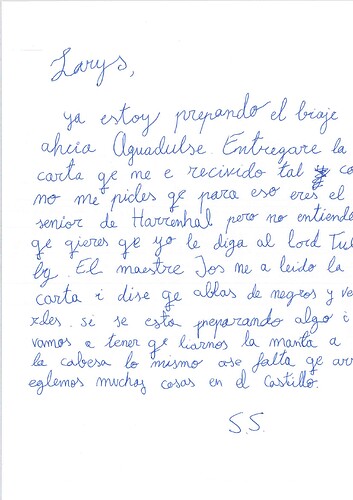 Larys,
ya estoy prepando el biaje
ahcia Aguadulse. Entregare la
carta qe me e recivido tal co
mo me pides qe para eso eres el
senior de Harrenhal pero no entiende
qe qieres qe yo le diga al lord Tul
ly. El maestre Jos me a leido la
carta i dise qe ablas de negros y ve
rdes. si se esta preparando algo i
vamos a tener qe liarnos la manta a
la cabesa lo mismo ase falta qe arr
eglemos muchas cosas en el Castillo.
S.S.